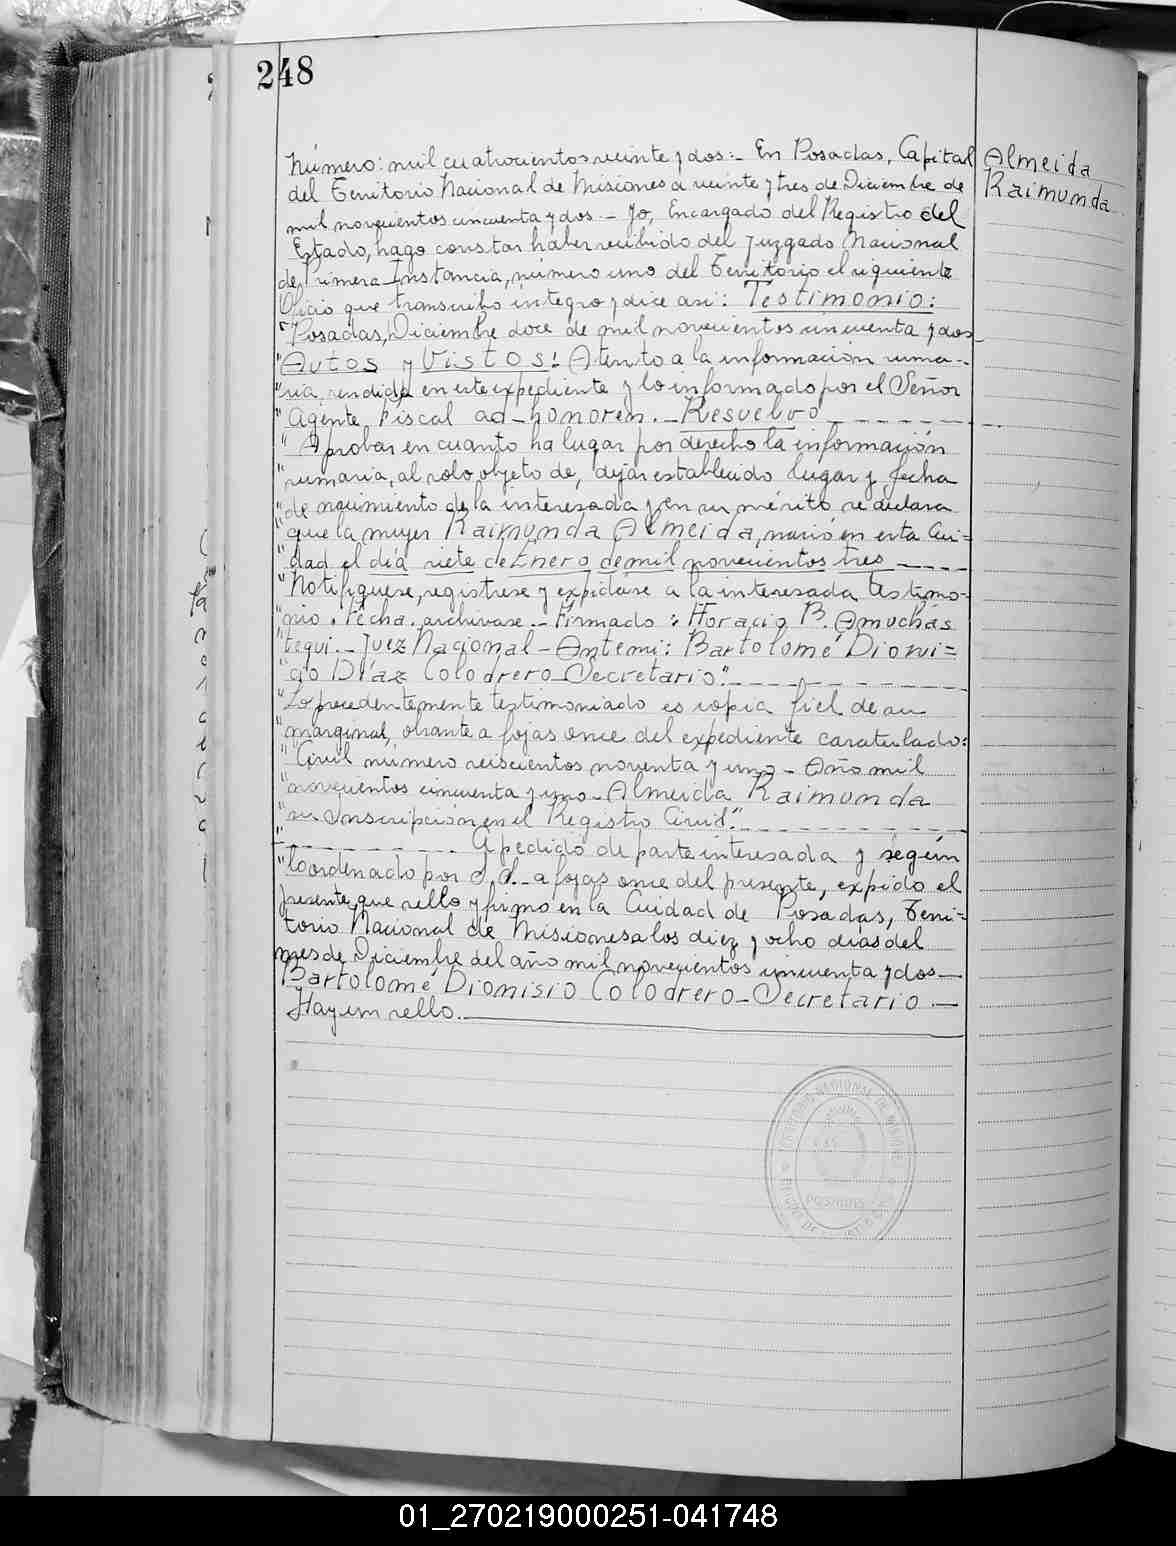 248
Número: mil cuatrocientos veinte y dos:- En Posadas, Capital
del Territorio Nacional de Misiones a veinte y tres de Diciembre de
mil novecientos cincuenta y dos.- Yo, Encargado del Registro del
Estado, hago constar haber recibido del Juzgado Nacional
de Primera Instancia, número uno del Territorio el siguiente
Oficio que transcribo integro y dice así: Testimonio:
"Posadas, Diciembre doce de mil novecientos cincuenta y dos
"Autos y Vistos: Atento a la información suma-
"ria, rendida en este expediente y lo informado por el Señor
"Agente Fiscal ad-honorem.- Resuelvo
"Aprobar en cuanto ha lugar por derecho la información
"sumaria, al solo objeto de, dejar establecido lugar y fecha
"de nacimiento de la interesada y en su mérito se declara
"que la mujer Raimunda Almeida, nació en esta Ciu=
"dad el día siete de Enero de mil novecientos tres
"Notifíquese, regístrese y expídase a la interesada testimo-
"nio. Fecha. archívase.- Firmado: Horacio B. Amuchás
"tegui.- Juez Nacional - Antemi: Bartolomé Dioni=
"cio Díaz Colodrero Secretario".
"Lo precedentemente testimoniado es copia fiel de su
"marginal, obrante a fojas once del expediente caratulado:
"Civil número seiscientos noventa y uno - Año mil
"novecientos cincuenta y uno - Almeida Raimunda
"su Inscripción en el Registro Civil".
" A pedido de parte interesada y según
"lo ordenado por S. S. a fojas once del presente, expido el
presente, que sello y firmo en la Cuidad de Posadas, Terri=
torio Nacional de Misiones a los diez y ocho días del
mes de Diciembre del año mil novecientos cincuenta y dos
Bartolomé Dionisio Colodrero - Secretario -
Hay un sello.
Almeida
Raimunda
POSADAS
01_270219000251-041748